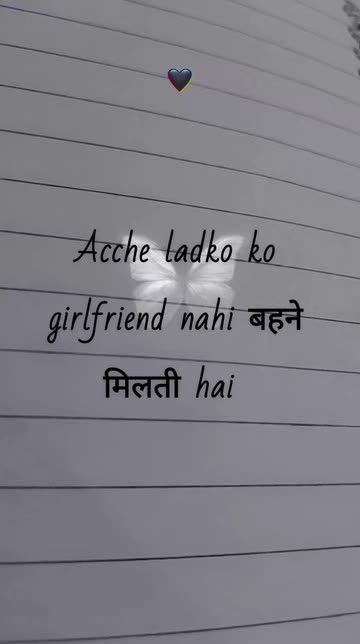 Acche ladko ko
girlfriend nahi बहने
मिलती hai